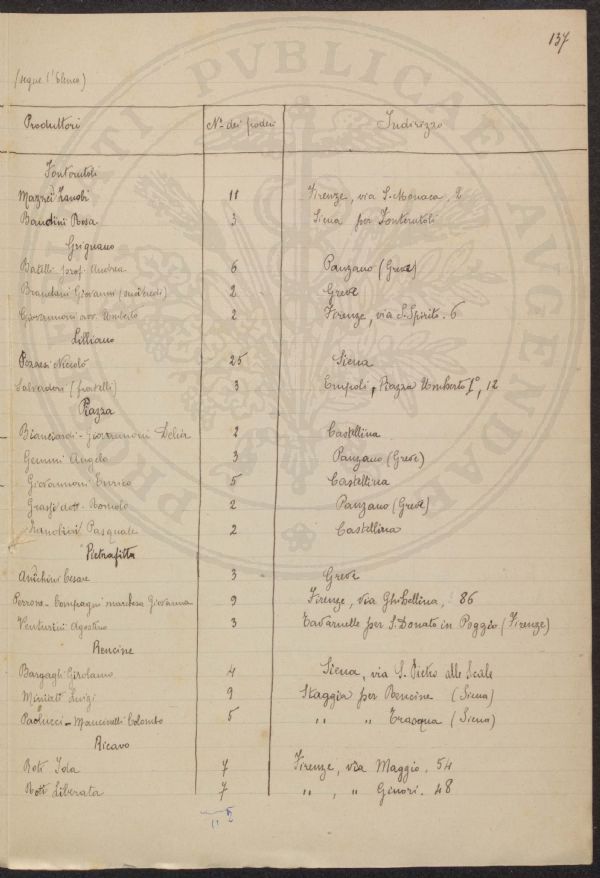 137
(segue l'Elenco)
Produttori N.° dei poderi Indirizzo
Fonterutoli
Mazzei Zanobi 11 Firenze, via S. Monaca, 2
Bandini Rosa 3 Siena per Fonterutoli
Grignano
Batelli prof. Andrea 6 Panzano (Greve)
Brandani Giovanni (suoi eredi) 2 Greve
Giovannoni avv. Umberto 2 Firenze, via S. Spirito. 6
Lilliano
Pozzesi Niccolò 25 Siena
Salvadori (fratelli) 3 Empoli, Piazza Umberto I°, 12
Piazza
Bianciardi - Giovannoni Delia 2 Castellina
Gemmi Angelo 3 Panzano (Greve)
Giovannoni Enrico 5 Castellina
Grassi dott. Romolo 2 Panzano (Greve)
Landini Pasquale 2 Castellina
Pietrafitta
Anichini Cesare 3 Greve
Perrone - Compagni marchesa Giovanna 9 Firenze, via Ghibellina, 86
Venturini Agostino 3 Tavarnelle per S. Donato in Poggio (Firenze)
Rencine
Bargagli Girolamo 4 Siena, via S. Pietro alle Scale
Miniati Luigi 9 Staggia per Rencine (Siena)
Paolucci - Mancinelli Colombo 5 " " Trasqua (Siena)
Ricavo
Roti Ida 7 Firenze, via Maggio. 54
Roti Liberata 7 " , " Ginori. 48
PVBLICAE